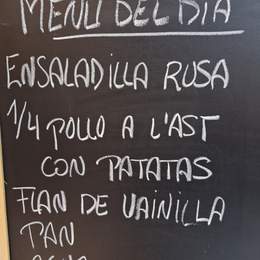 MENÚ DEL DIA
ENSALADILLA RUSA
1/4 POLLO A L'AST
CON PATATAS
FLAN DE VAINILLA
PAN